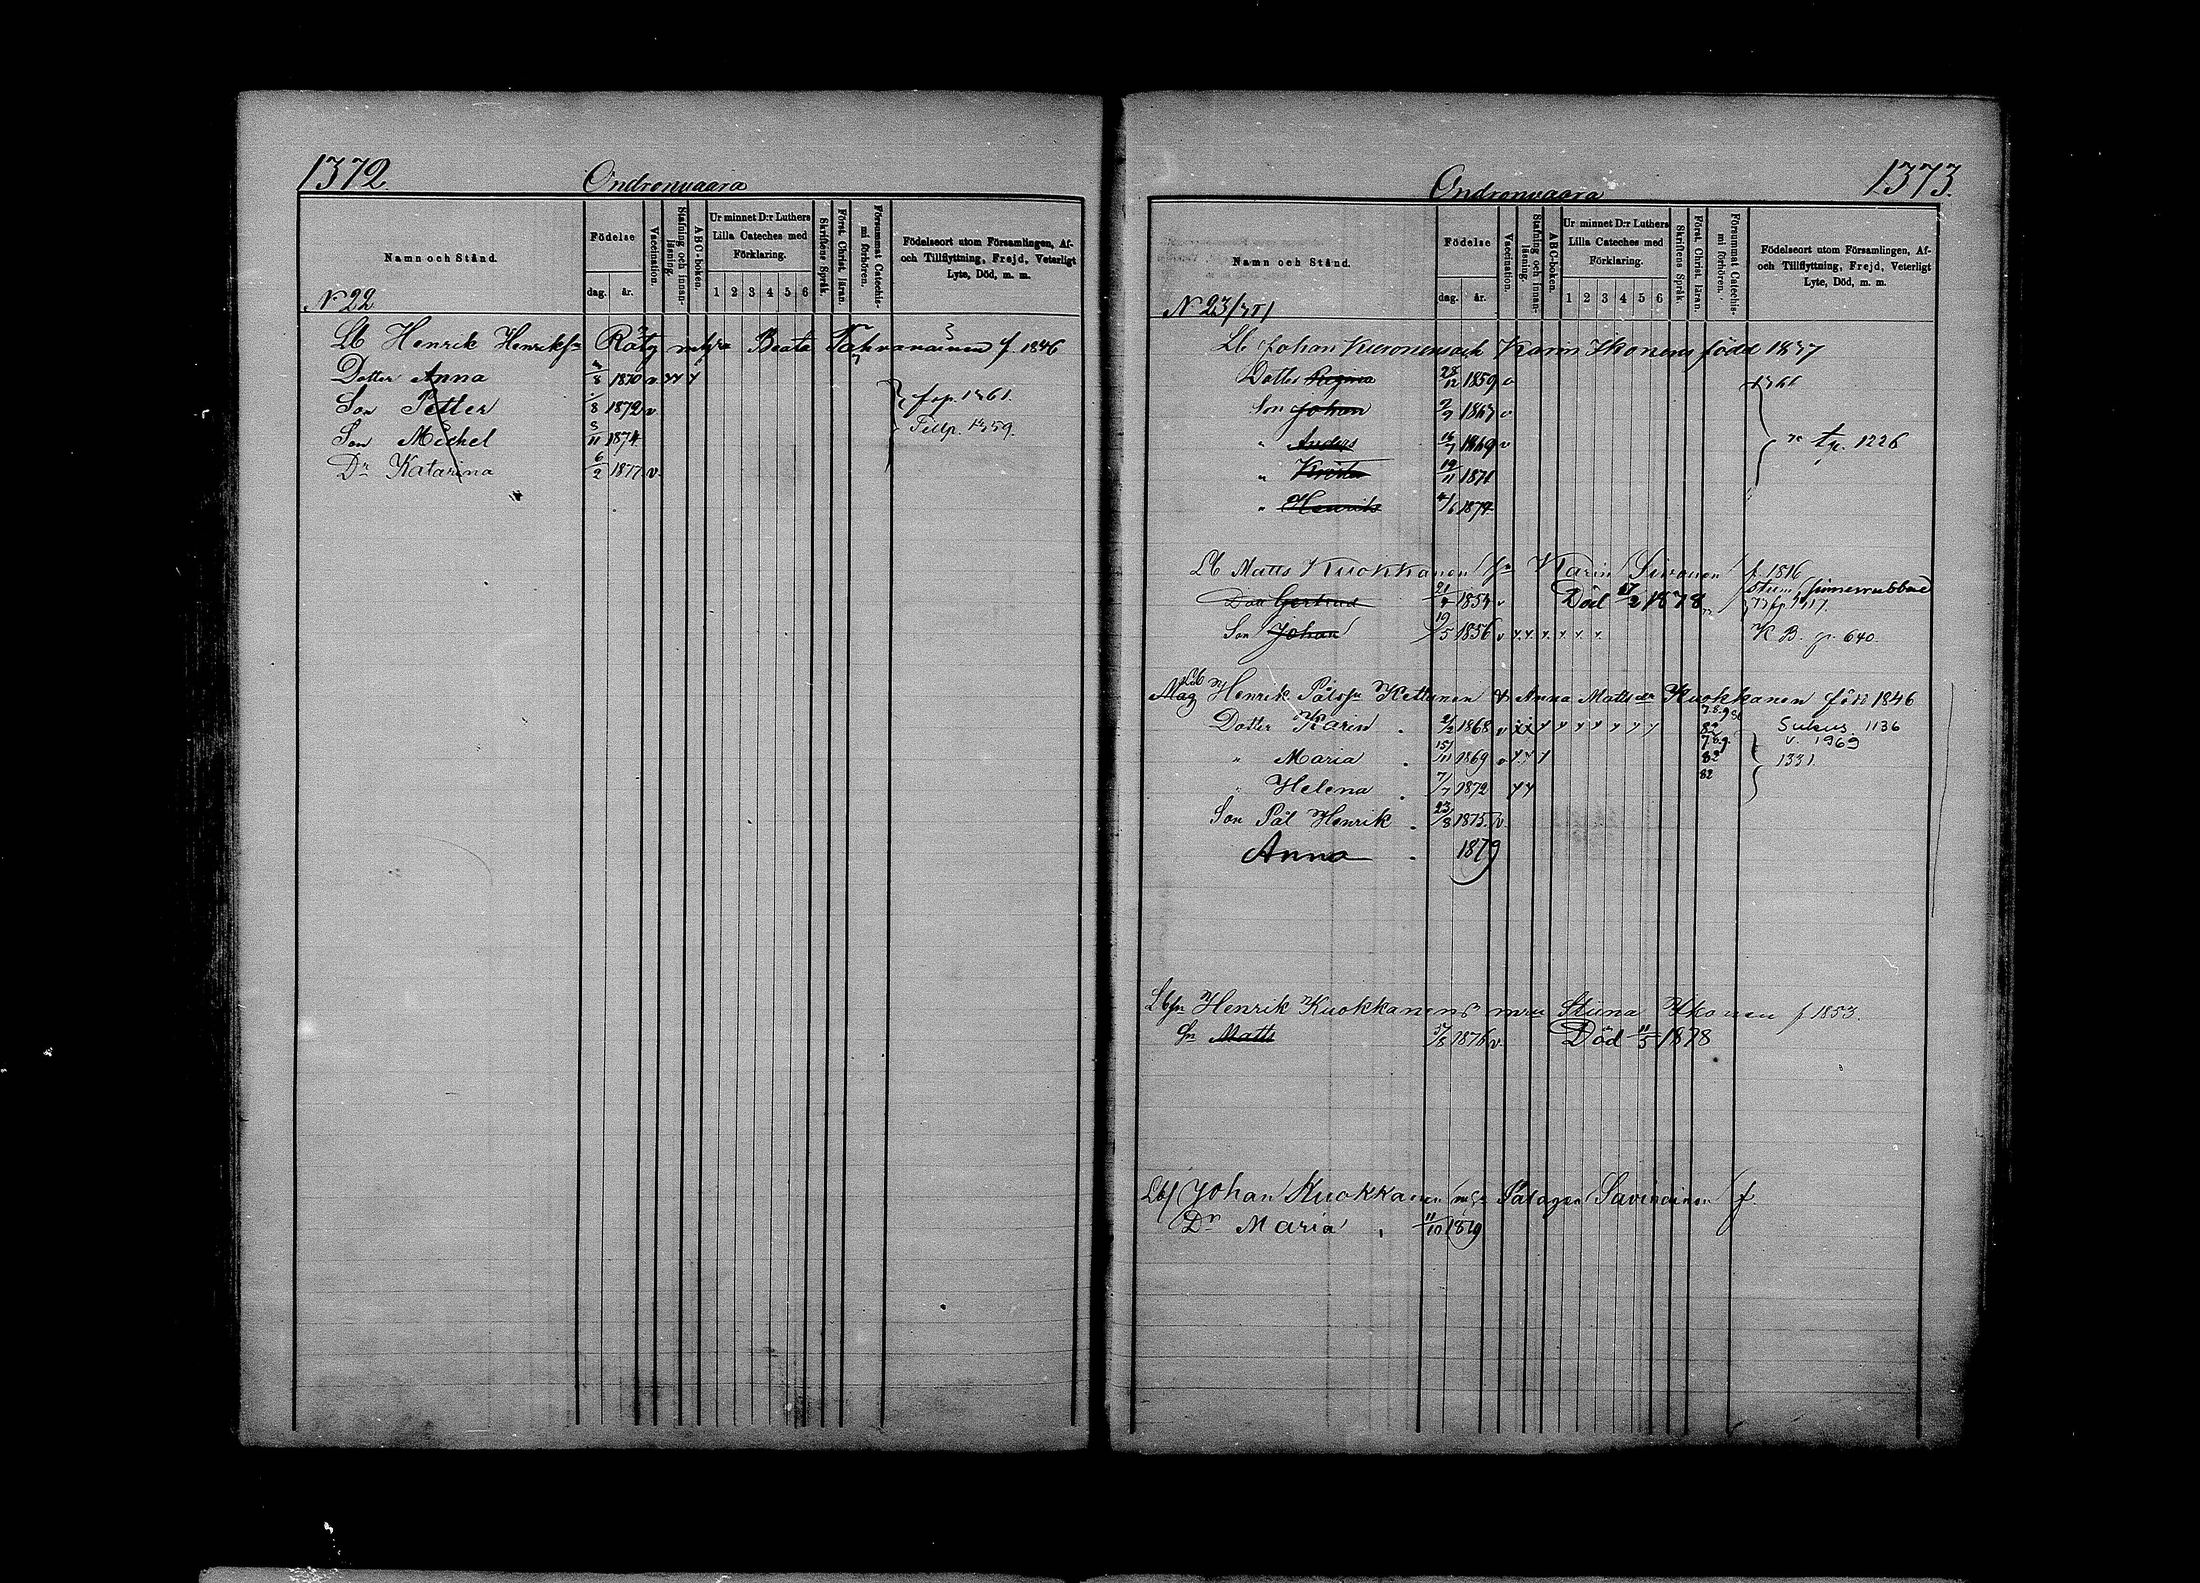 1372
Ondronvaara
Namn och Stånd.
Födelse
dag. år.
Vaccination.
Stafning och innanläsning.
ABC-boken.
Ur minnet D:r Luthers Lilla Cateches med Förklaring.
1 2 3 4 5 6
Skriftens Språk.
Först. Christ. läran.
Försummat Catechismi förhören.
Födelseort utom Församlingen, Af- och Tillflyttning, Frejd, Veterligt Lyte, Död, m. m.
N 22
Lb Henrik Henriks Räty Beata Tahvanainen f. 1846
Dotter Anna /8 1870 v
Son Petter /8 1872 v. 1361.
Son Michel 3/11 1874 1359.
Dr Katarina 6/2 1877 v.
Ondronvaara
1373.
Namn och Stånd.
Födelse
dag. år.
Vaccination.
Stafning och innanläsning.
ABC-boken.
Ur minnet D:r Luthers Lilla Cateches med Förklaring.
1 2 3 4 5 6
Skriftens Språk.
Först. Christ. läran.
Försummat Catechismi förhören.
Födelseort utom Församlingen, Af- och Tillflyttning, Frejd, Veterligt Lyte, Död, m. m.
N 23
Lb Johan Karin Ikonens född 1837
Dotter Regina 28/12 1859 v
Son Johan 1867 v
" Anders 16/7 1869 v 1226
" 19/11 1871
" Henrik 4/6 1874
Lb Matts Kuokkanen Karin Sivonen f. 1816
Dott Gertrud v Död 1878
Son Johan 19/5 1856 v K B. 640.
Lb Henrik Pålss Kettunen & Anna Matts dr Kuokkanen född 1846
Dotter Karin 2/2 1868 v 1136
" Maria 15/11 1869 v 82 1331.
" Helena 7/7 1872 82
Son Pål Henrik 23/8 1875. v.
Anna 1879
Henrik Kuokkanens Stina Ikonen f 1853.
Sn Matts 1876 v. Död 11/5 1878
Johan Kuokkanen Savinainen f.
Dr Maria 11/10 1879